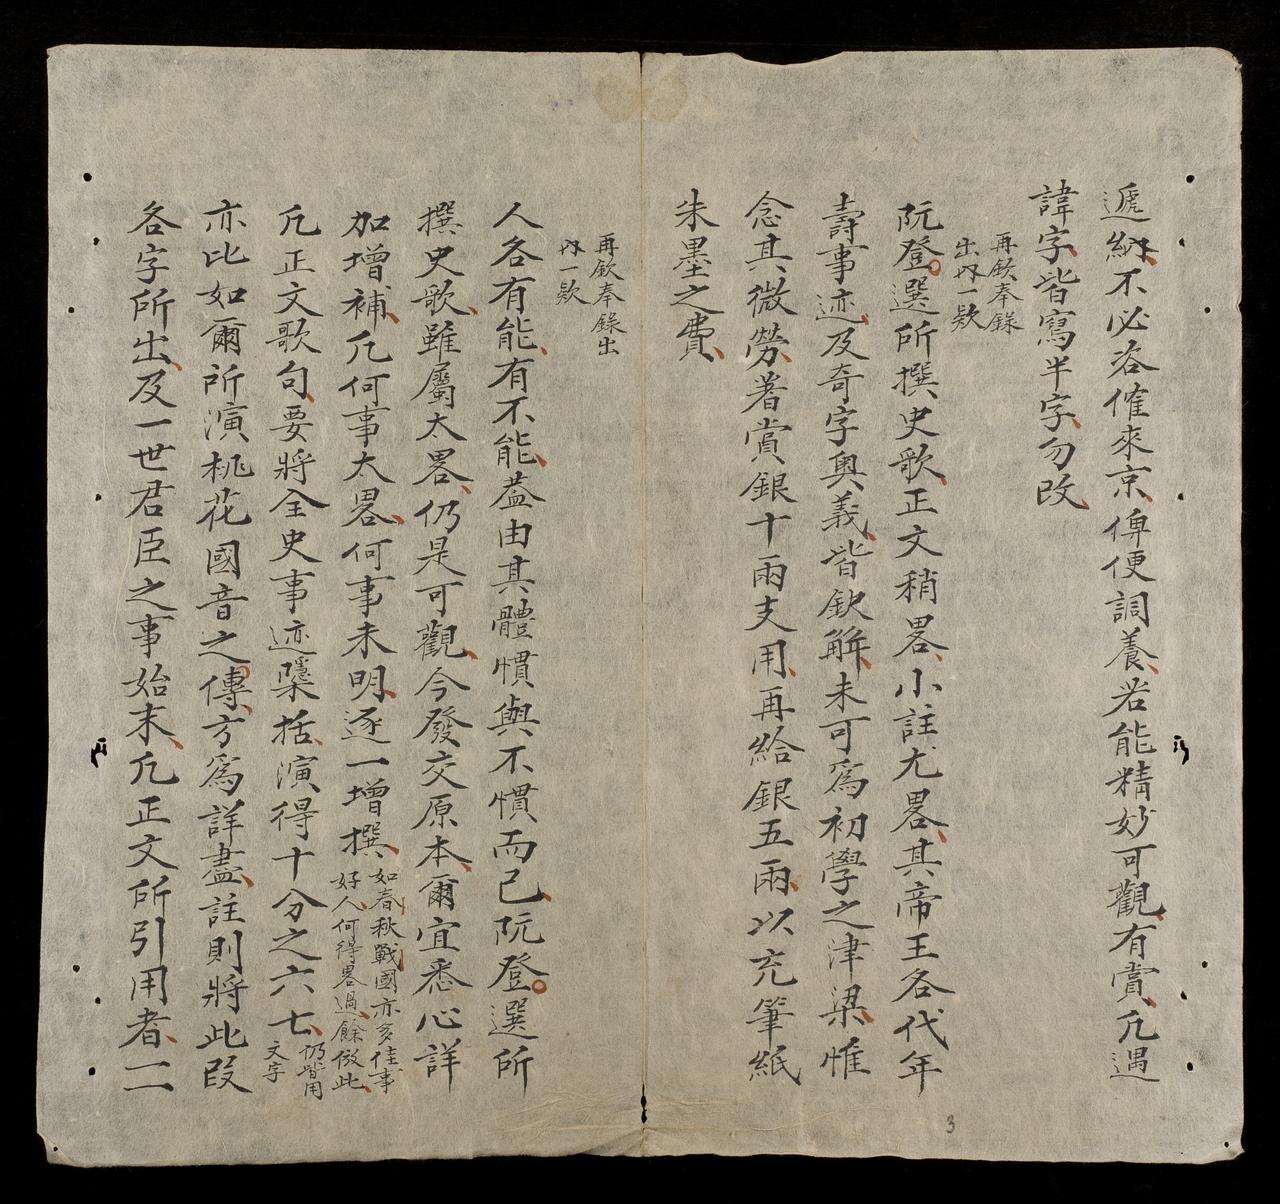 遞納不必咨催來京俾便調養若能精妙可觀有賞凡遇
諱字皆寫半字勿改
再欽奉錄
出内一款
阮登選所撰史歌正文稍畧小註尤畧其帝王各代年
壽事迹及奇字奥義皆欽觧未可爲初學之津梁惟
念其微勞著賞銀十兩支用再給銀五兩以充筆紙
朱墨之費
再欽奉錄出
内一款
人各有能有不能葢由其體慣與不慣而已阮登選所
撰史歌雖屬太畧仍是可觀今發交原本爾宜悉心詳
加增補凡何事太畧何事未明逐一增撰如春秋戰國亦多佳事
好人何得畧過餘倣此
凡正文歌句要將全史事迹檃括演得十分之六七仍皆用
文字
亦比如爾所演桃花國音之傳方爲詳盡註則將此段
各字所出及一世君臣之事始末凡正文所引用者一一